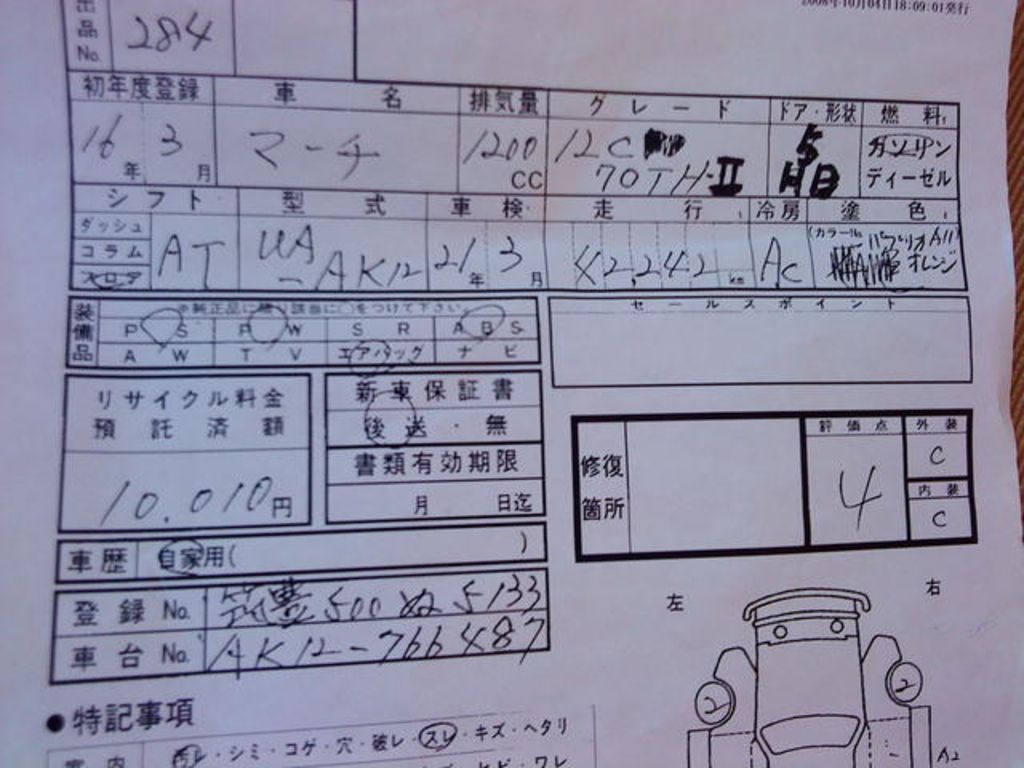 2008年10月04日18:09:01発行
出品No. 284
初年度登録 車名 排気量 グレード ドア・形状 燃料
16年 3月 マーチ 1200CC 12C 5 ガソリン
70TH-II HB ディーゼル
シフト 型式 車検 走行 冷房 塗色
ダッシュ コラム フロア AT UA-AK12 21年 3月 42.242km AC (カラーNo. パプリカ オレンジ
装備品 ※純正品に限り該当に○をつけて下さい セールスポイント
PS PW SR ABS
AW TV エアバッグ ナビ
リサイクル料金 新車保証書
預託済額 後送・無 評価点 外装
書類有効期限 修復箇所 4 C
10.010円 月 日迄 内装
C
車歴 自家用( )
登録No. 筑豊500 ぬ 5133 左 右
車台No. AK12-766487
2 2
●特記事項
室内 汚レ・シミ・コゲ・穴・破レ・スレ・キズ・ヘタリ
A2